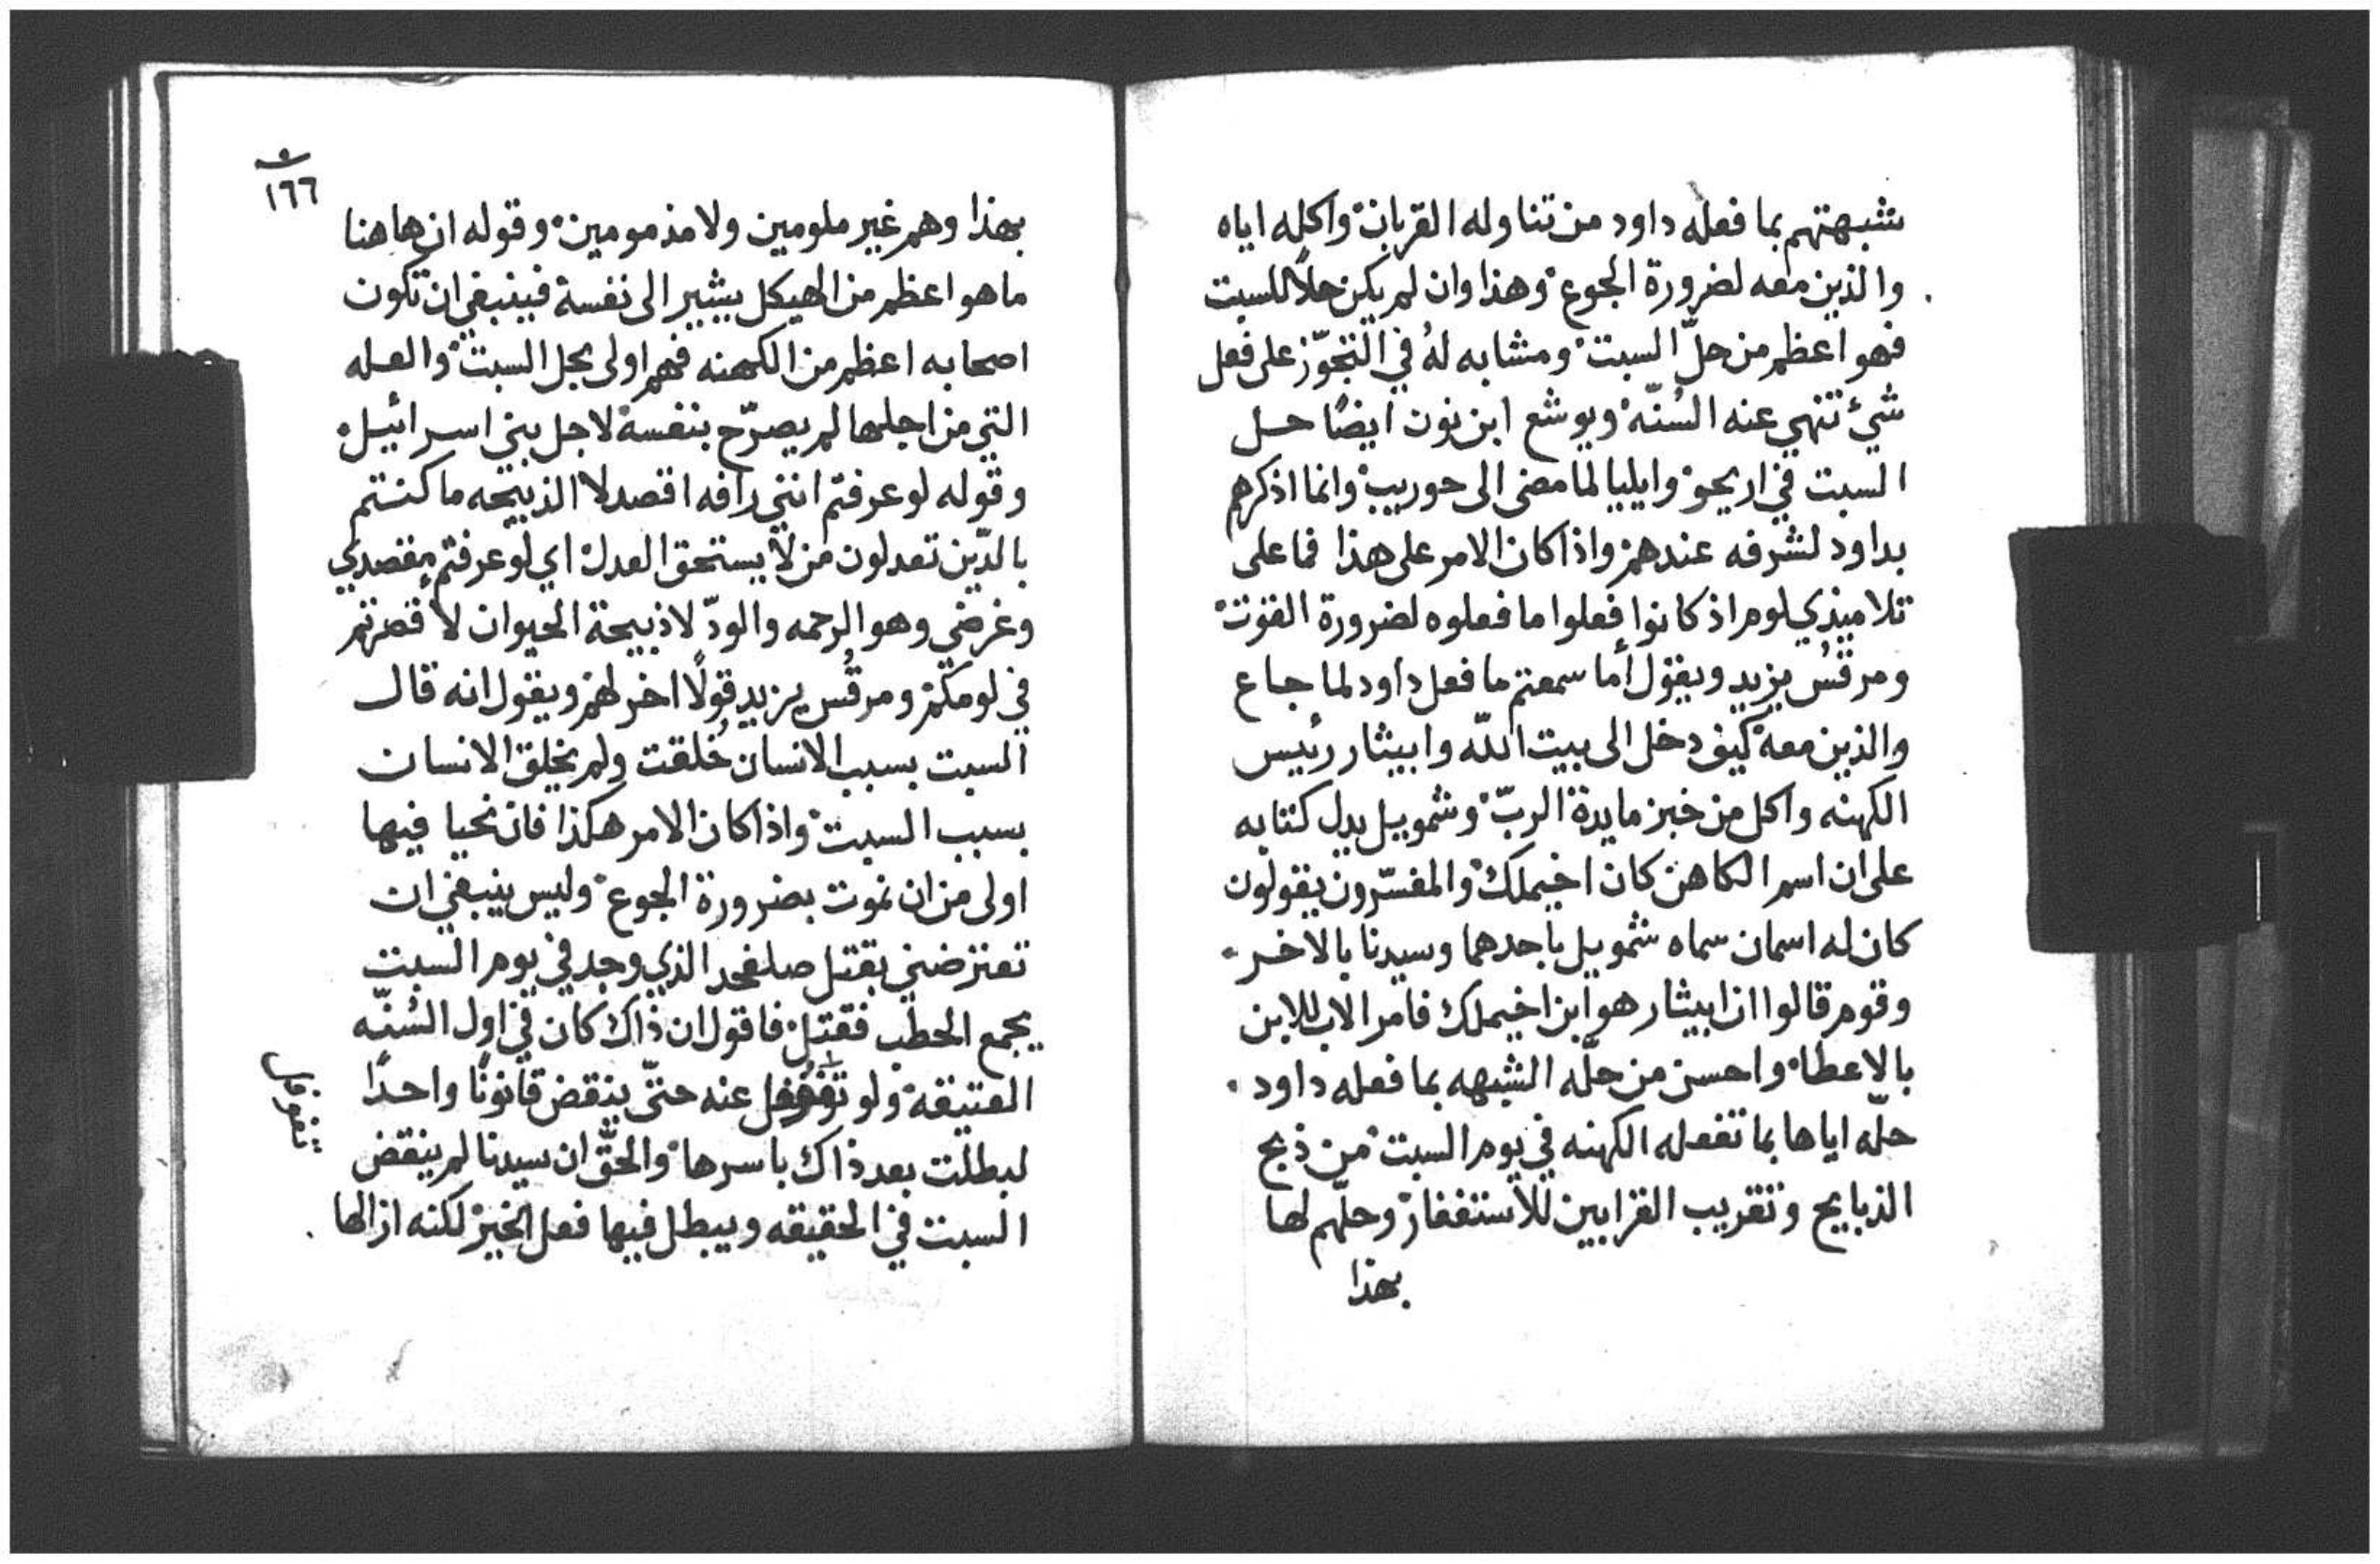 شبهتهم بما فعله داود من تناوله القربان واكله اياه
والذين معه لضرورة الجوع وهذا وان لم يكن حلاً للسبت
فهو اعظم من حلّ السبت ومشابه لهُ في التجوّز على فعل
شيء تنهي عنه السُنّه ويوشع ابن نون ايضًا حل
السبت في اريحو وايليا لما مضى الى حوريب وانما اذكرهم
بداود لشرفه عندهم واذا كان الامر على هذا فما على
تلاميذي لوم اذ كانوا فعلوا ما فعلوه لضرورة القوت
ومرقسُ يزيد ويقول أما سمعتم ما فعل داود لما جاع
والذين معه كيف دخل الى بيت اللّه وابيثار رئيس
الكهنه واكل من خبز مايدة الربّ وشمويل يدل كتابه
على ان اسم الكاهن كان اخيملك والمفسّرون يقولون
كان له اسمان سماه شمويل باحدهما وسيدنا بالاخر
وقوم قالوا ان ابيثار هو ابن اخيملك فامر الاب للابن
بالاعطا واحسن من حلّه الشبهه بما فعله داود
حلّه اياها بما تفعله الكهنه في يوم السبت من ذبح
الذبايح وتقريب القرابين للاستغفار وحلّهم لها
بهذا
١٦٦
بهذا وهم غير ملومين ولا مذمومين وقوله ان هاهنا
ما هو اعظم من الهيكل يشير الى نفسه فينبغي ان تكون
اصحابه اعظم من الكهنه فهم اولى بحل السبت والعله
التي من اجلها لم يصرّح بنفسه لاجل بني اسرائيل
وقوله لو عرفتم انني رافه اقصد لا الذبيحه ما كنتم
بالدّين تعدلون من لا يستحق العدل اي لو عرفتم مقصدي
وغرضي وهو الرحمه والودّ لا ذبيحة الحيوان لاقصرتم
في لومكم ومرقُس يزيد قولًا اخر لهم ويقول انه قال
السبت بسبب الانسان خُلقت ولم يخلق الانسان
بسبب السبت واذا كان الامر هكذا فان نحيا فيها
اولى من ان نموت بضرورة الجوع وليس ينبغي ان
تعترضني بقتل صلفحد الذي وجد في يوم السبت
يجمع الحطب فقتل فاقول ان ذاك كان في اول السُنّه
العتيقه ولو عنه حتّى ينقض قانونًا واحدًا
تغوفل
لبطلت بعد ذاك باسرها والحقّ ان سيدنا لم ينقض
السبت في الحقيقه ويبطل فيها فعل الخير لكنه ازالها